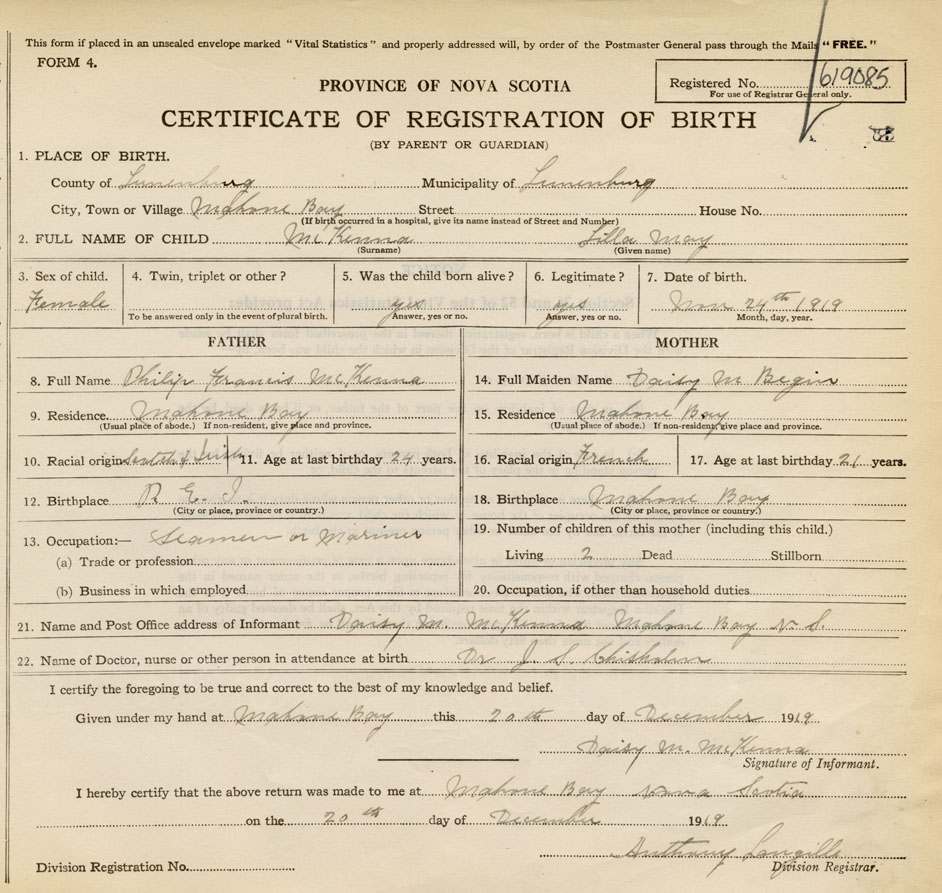 This form if placed in an unsealed envelope marked "Vital Statistics" and properly addressed will, by order of the Postmaster General pass through the Mails "FREE."
FORM 4.
Registered No. 619085
For use of Registrar General only.
PROVINCE OF NOVA SCOTIA
CERTIFICATE OF REGISTRATION OF BIRTH
(BY PARENT OR GUARDIAN)
1. PLACE OF BIRTH.
County of Lunenburg Municipality of Lunenburg
City, Town or Village Mahone Bay Street House No.
(If birth occurred in a hospital, give its name instead of Street and Number)
2. FULL NAME OF CHILD McKenna Lilla May
(Surname) (Given name)
3. Sex of child. 4. Twin, triplet or other? 5. Was the child born alive? 6. Legitimate? 7. Date of birth.
Female yes yes Nov 24th 1919
To be answered only in the event of plural birth. Answer, yes or no. Answer, yes or no. Month, day, year.
FATHER MOTHER
8. Full Name Philip Francis McKenna 14. Full Maiden Name Daisy M Begin
9. Residence Mahone Bay 15. Residence Mahone Bay
(Usual place of abode.) If non-resident, give place and province. (Usual place of abode.) If non-resident, give place and province.
10. Racial origin Scotch & Irish 11. Age at last birthday 24 years. 16. Racial origin French 17. Age at last birthday 21 years.
12. Birthplace P. E. I. 18. Birthplace Mahone Bay
(City or place, province or country.) (City or place, province or country.)
13. Occupation:— Seamen or Mariner 19. Number of children of this mother (including this child.)
(a) Trade or profession Living 2 Dead Stillborn
(b) Business in which employed 20. Occupation, if other than household duties
21. Name and Post Office address of Informant Daisy M. McKenna Mahone Bay N. S.
22. Name of Doctor, nurse or other person in attendance at birth Dr J. S. Chisholm
I certify the foregoing to be true and correct to the best of my knowledge and belief.
Given under my hand at Mahone Bay this 20th day of December 1919
Daisy M. McKenna
Signature of Informant.
I hereby certify that the above return was made to me at Mahone Bay Nova Scotia
on the 20th day of December 1919
Anthony Langille
Division Registration No. Division Registrar.